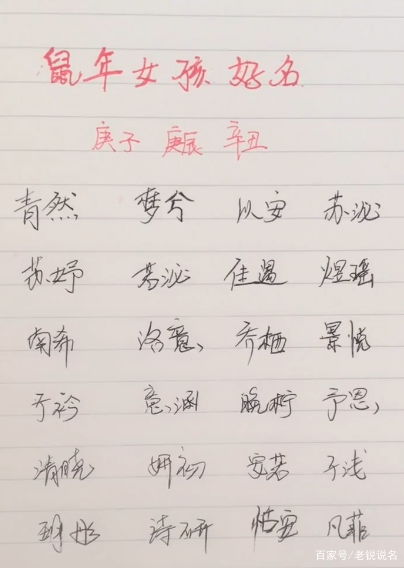 鼠年女孩好名
庚子 庚辰 辛丑
青然 梦兮 以安 苏泌
苏妤 若泌 佳遇 煜瑶
南希 洛意 乔栖 景悦
于衿 意涵 晚柠 予恩
清晓 妍初 安若 于浅
诗研 恬安 凡菲
百家号/老锐说名